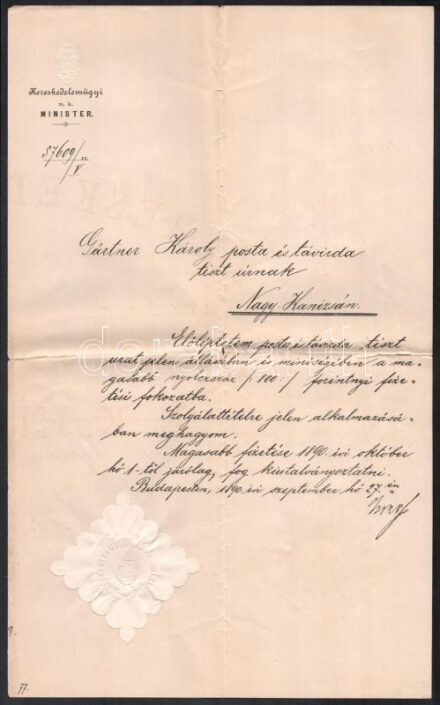 Kereskedelemügyi
m. k.
MINISTER.
57609/
V
Gártner Károly posta és távirda
tiszt úrnak
Nagy Kanizsán.
Előléptetem posta és távirda tiszt
urat jelen állásában és minőségében a ma-
gasabb nyolczszáz /:800:/ forintnyi fize-
tési fokozatba.
Szolgálattételre jelen alkalmazásá-
ban meghagyom.
Magasabb fizetése 1890. évi október
hó 1-től járólag, fog kiutalványoztatni.
Budapesten, 1890. évi szeptember hó 27-én
77.